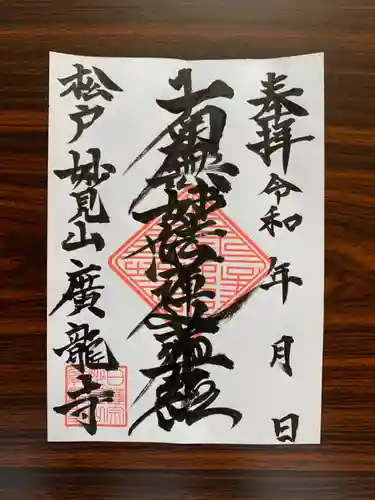 奉拝 令和 年 月 日
南無妙法蓮華経
松戸 妙見山 廣龍寺